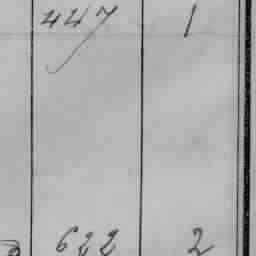 447 1
622 2